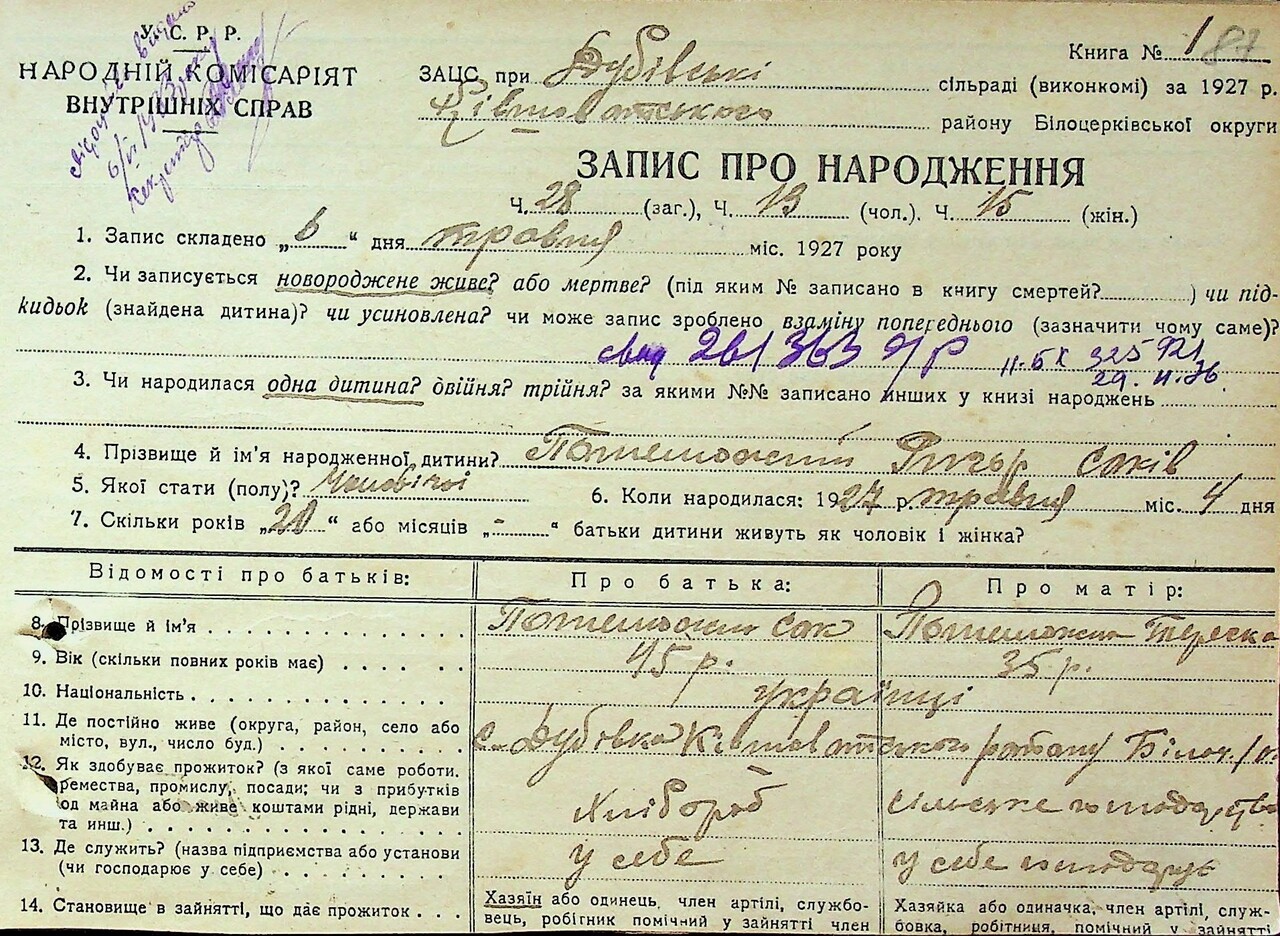 У. С. Р. Р.
НАРОДНІЙ КОМІСАРІЯТ
ВНУТРІШНІХ СПРАВ
Книга № 1 87
ЗАЦС при Дубівські сільраді (виконкомі) за 1927 р.
Ківшоватського району Білоцерківської округи
ЗАПИС ПРО НАРОДЖЕННЯ
Ч. 28 (заг.), Ч. 13 (чол.). Ч. 15 (жін.)
1. Запис складено „6“ дня травня міс. 1927 року
2. Чи записується новороджене живе? або мертве? (під яким № записано в книгу смертей? ) чи під-
кидьок (знайдена дитина)? чи усиновлена? чи може запис зроблено взаміну попереднього (зазначити чому саме)?
261363 II-БК 325921
29. II. 76.
3. Чи народилася одна дитина? двійня? трійня? за якими №№ записано инших у книзі народжень
4. Прізвище й ім'я народженної дитини? Саків
5. Якої стати (полу)? Чоловічої 6. Коли народилася: 1927 р. травня міс. 4 дня
7. Скільки років „20“ або місяців „-“ батьки дитини живуть як чоловік і жінка?
Відомості про батьків: Про батька: Про матір:
8. Прізвище й ім'я Сак
9. Вік (скільки повних років має) 45 р. 35 р.
10. Національність українці
11. Де постійно живе (округа, район, село або
місто, вул., число буд.) с. Дубовка Ківшоватського району Білоц.
12. Як здобуває прожиток? (з якої саме роботи.
ремества, промислу, посади; чи з прибутків
од майна або живе коштами рідні, держави
та инш.) Хлібороб сільське господарство
13. Де служить? (назва підприємства або установи
(чи господарює у себе) у себе у себе господарує
14. Становище в зайнятті, що дає прожиток
Хазяїн або одинець, член артілі, службо-
вець, робігник помічний у зайнятті член
Хазяйка або одиначка, член артілі, служ-
бовка, робітниця, помічний у зайнятті